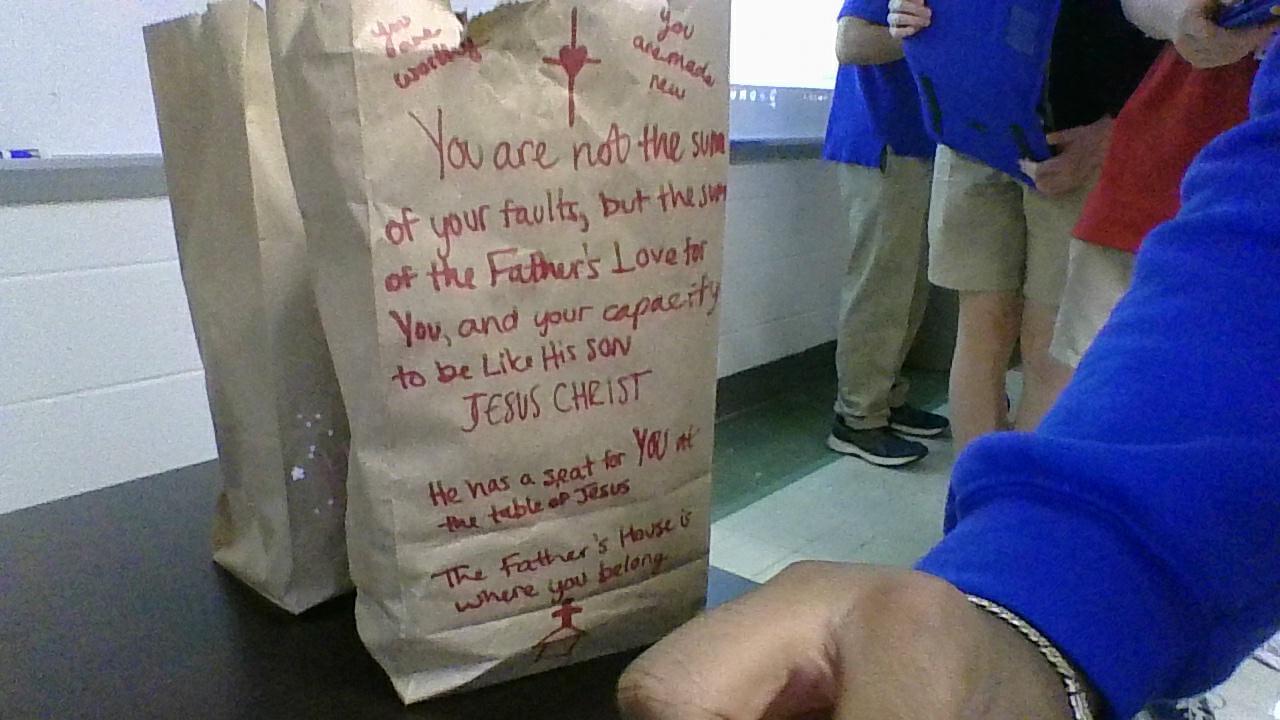 You are worthy
You are made new
You are not the sum
of your faults, but the sum
of the Father's Love for
You, and your capacity
to be Like His son
JESUS CHRIST
He has a seat for YOU at
the table of Jesus
The Father's House is
where you belong.